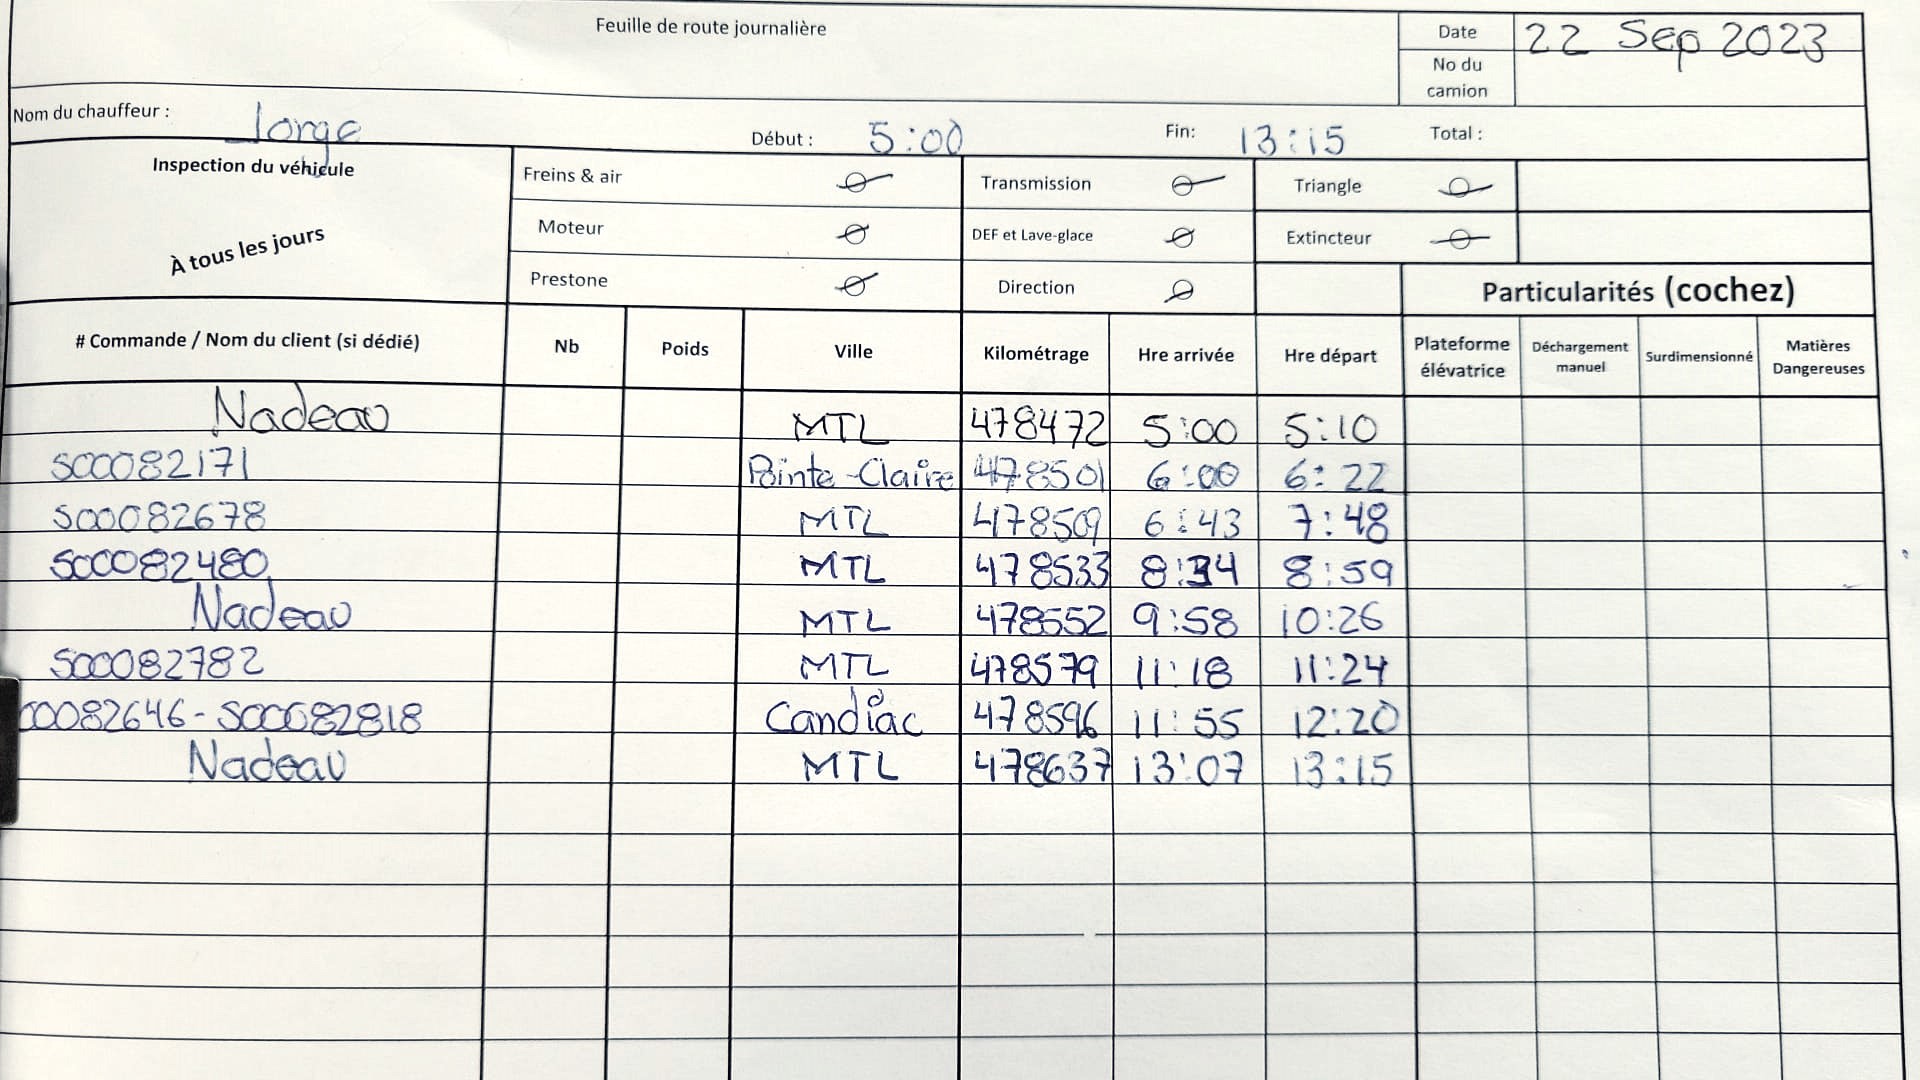 Feuille de route journalière
Date 22 Sep 2023
No du camion
Nom du chauffeur : Jorge Début : 5:00 Fin: 13:15 Total :
Inspection du véhicule
À tous les jours
Freins & air Transmission Triangle
Moteur DEF et Lave-glace Extincteur
Prestone Direction
Particularités (cochez)
# Commande / Nom du client (si dédié) Nb Poids Ville Kilométrage Hre arrivée Hre départ Plateforme élévatrice Déchargement manuel Surdimensionné Matières Dangereuses
Nadeau MTL 478472 5:00 5:10
S00082171 Pointe-Claire 478501 6:00 6:22
S00082678 MTL 478509 6:43 7:48
S00082480 MTL 478533 8:34 8:59
Nadeau MTL 478552 9:58 10:26
S00082782 MTL 478579 11:18 11:24
00082646 - S00082818 Candiac 478596 11:55 12:20
Nadeau MTL 478637 13:07 13:15